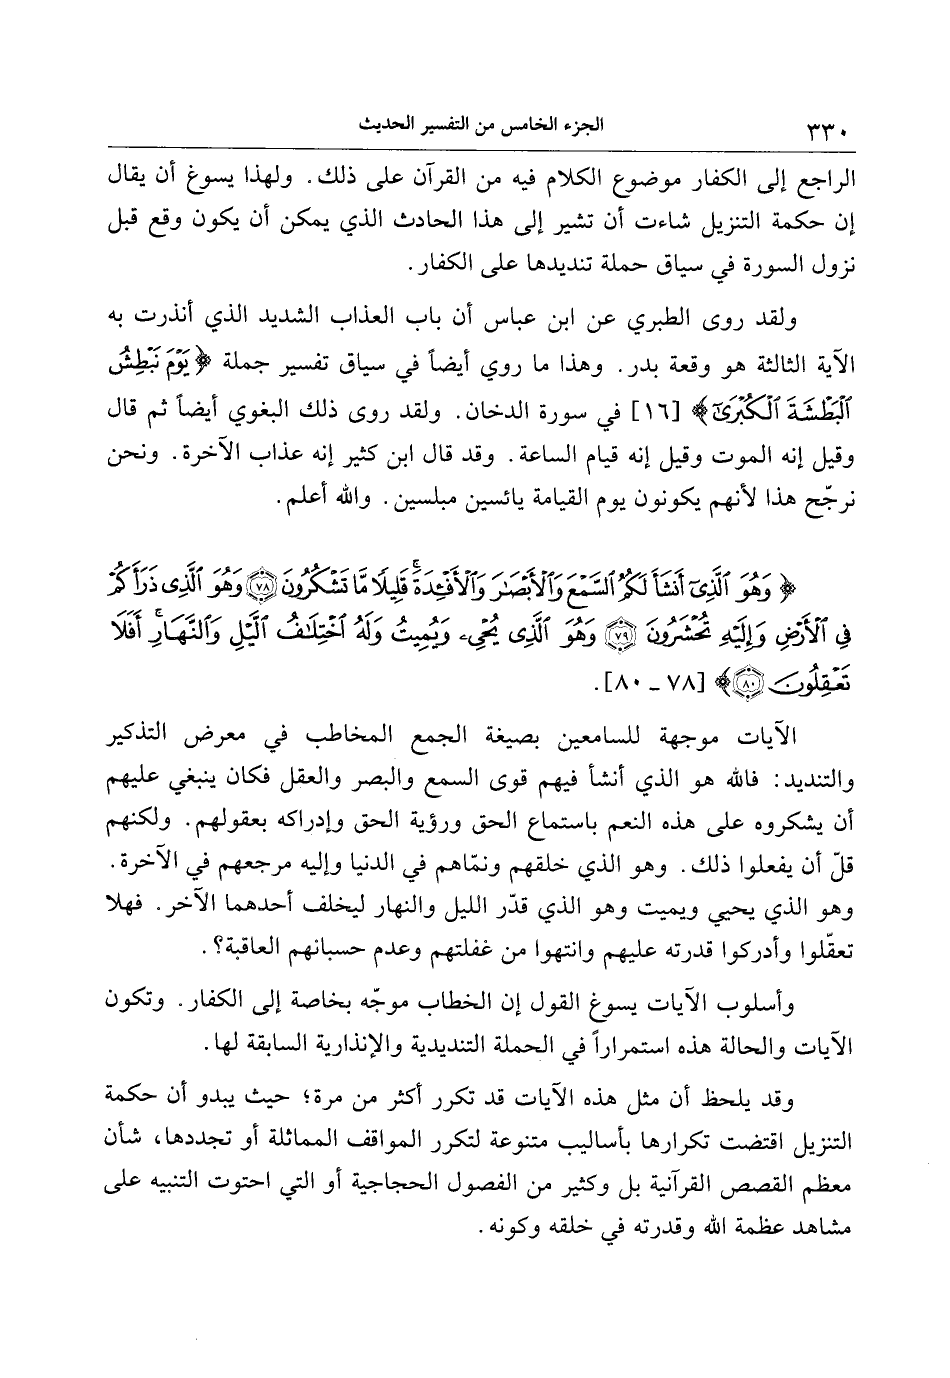 ٣٣٠ الجزء الخامس من التفسير الحديث
الراجع إلى الكفار موضوع الكلام فيه من القرآن على ذلك. ولهذا يسوغ أن يقال
إن حكمة التنزيل شاءت أن تشير إلى هذا الحادث الذي يمكن أن يكون وقع قبل
نزول السورة في سياق حملة تنديدها على الكفار.
ولقد روى الطبري عن ابن عباس أن باب العذاب الشديد الذي أنذرت به
الآية الثالثة هو وقعة بدر. وهذا ما روي أيضاً في سياق تفسير جملة ﴿يَوْمَ نَبْطِشُ
ٱلْبَطْشَةَ ٱلْكُبْرَىٰٓ﴾ [١٦] في سورة الدخان. ولقد روى ذلك البغوي أيضاً ثم قال
وقيل إنه الموت وقيل إنه قيام الساعة. وقد قال ابن كثير إنه عذاب الآخرة. ونحن
نرجّح هذا لأنهم يكونون يوم القيامة يائسين مبلسين. والله أعلم.
﴿وَهُوَ ٱلَّذِىٓ أَنشَأَ لَكُمُ ٱلسَّمْعَ وَٱلْأَبْصَـٰرَ وَٱلْأَفْـِٔدَةَ ۚ قَلِيلًا مَّا تَشْكُرُونَ ٧٨ وَهُوَ ٱلَّذِى ذَرَأَكُمْ
فِى ٱلْأَرْضِ وَإِلَيْهِ تُحْشَرُونَ ٧٩ وَهُوَ ٱلَّذِى يُحْىِۦ وَيُمِيتُ وَلَهُ ٱخْتِلَـٰفُ ٱلَّيْلِ وَٱلنَّهَارِ ۚ أَفَلَا
تَعْقِلُونَ ٨٠﴾ [٧٨ ـ ٨٠].
الآيات موجهة للسامعين بصيغة الجمع المخاطب في معرض التذكير
والتنديد: فالله هو الذي أنشأ فيهم قوى السمع والبصر والعقل فكان ينبغي عليهم
أن يشكروه على هذه النعم باستماع الحق ورؤية الحق وإدراكه بعقولهم. ولكنهم
قلّ أن يفعلوا ذلك. وهو الذي خلقهم ونمّاهم في الدنيا وإليه مرجعهم في الآخرة.
وهو الذي يحيي ويميت وهو الذي قدّر الليل والنهار ليخلف أحدهما الآخر. فهلا
تعقّلوا وأدركوا قدرته عليهم وانتهوا من غفلتهم وعدم حسبانهم العاقبة؟.
وأسلوب الآيات يسوغ القول إن الخطاب موجّه بخاصة إلى الكفار. وتكون
الآيات والحالة هذه استمراراً في الحملة التنديدية والإنذارية السابقة لها.
وقد يلحظ أن مثل هذه الآيات قد تكرر أكثر من مرة؛ حيث يبدو أن حكمة
التنزيل اقتضت تكرارها بأساليب متنوعة لتكرر المواقف المماثلة أو تجددها، شأن
معظم القصص القرآنية بل وكثير من الفصول الحجاجية أو التي احتوت التنبيه على
مشاهد عظمة الله وقدرته في خلقه وكونه.